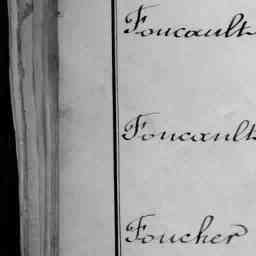 Foucault
Foucault
Foucher